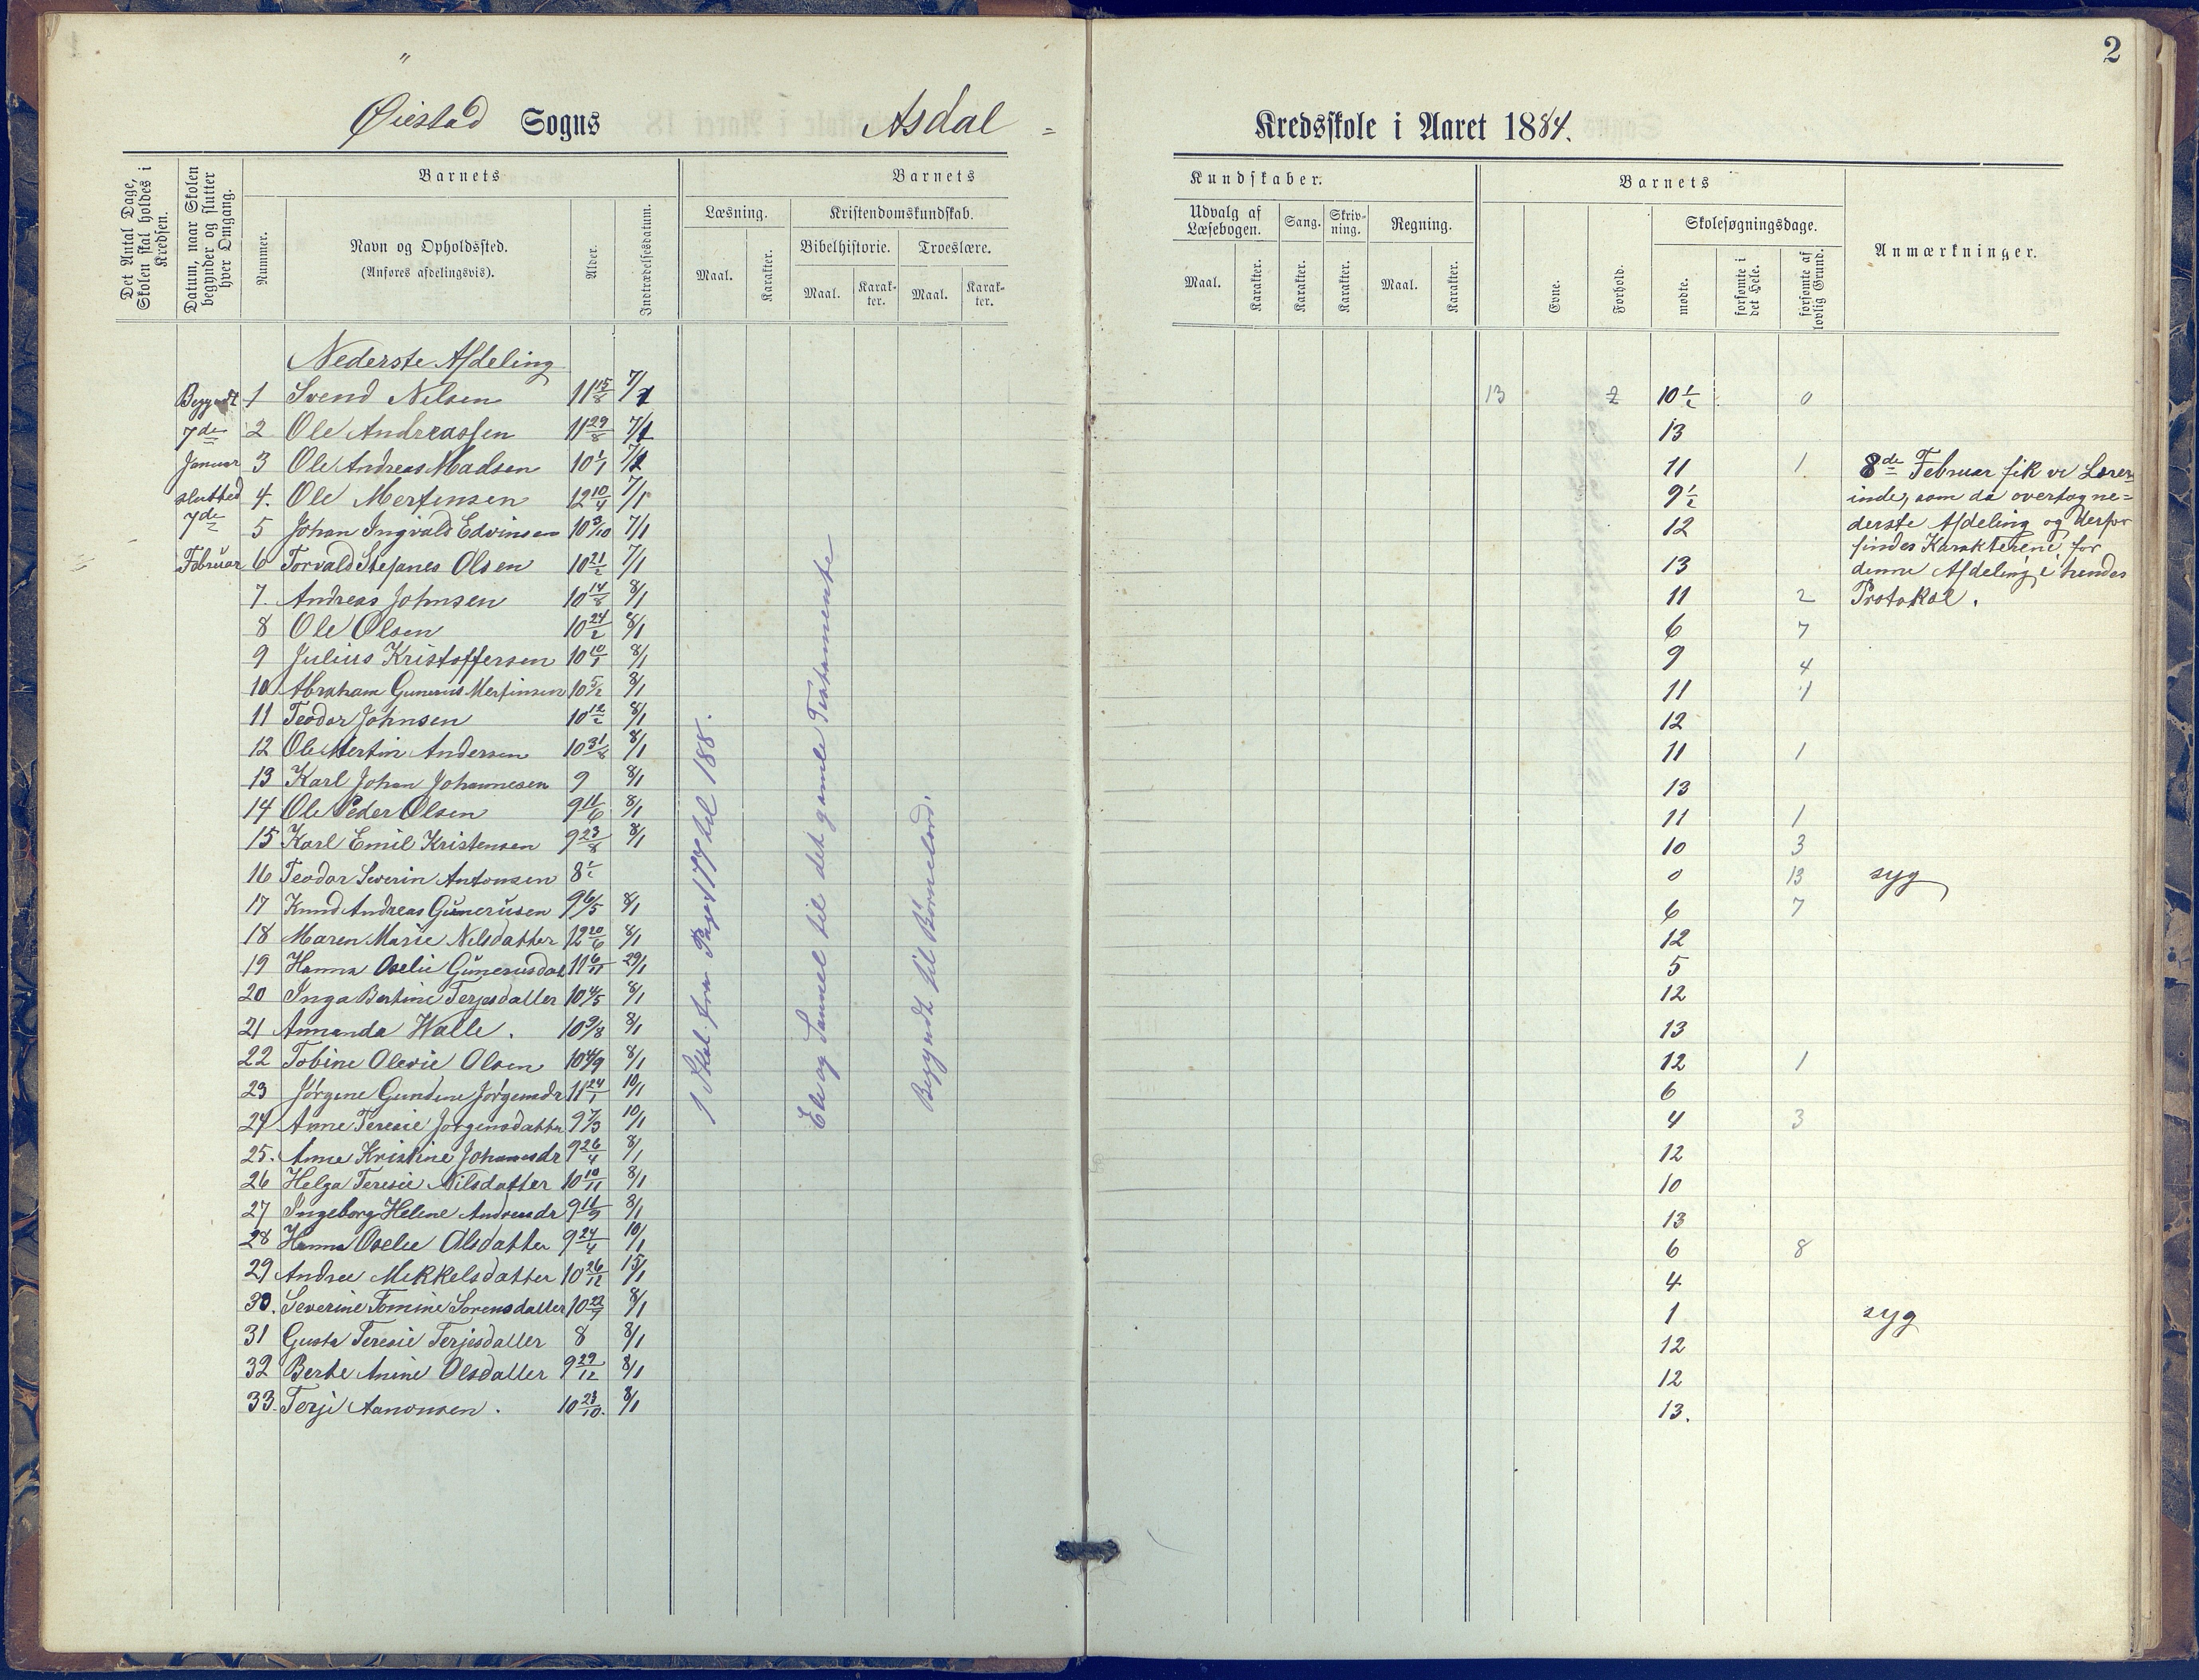 2
Øiestad Sogns Asdal =
Kredsskole i Aaret 1884.
Det Antal Dage, Skolen skal holdes i Kredsen.
Datum, naar Skolen begynder og slutter hver Omgang.
Barnets
Nummer.
Navn og Opholdssted.
(Anføres afdelingsvis).
Alder.
Indtrædelsesdatum.
Barnets
Læsning.
Maal.
Karakter.
Kristendomskundskab.
Bibelhistorie.
Maal.
Karak-
ter.
Troeslære.
Maal.
Karak-
ter.
Kundskaber.
Udvalg af
Læsebogen.
Maal.
Karakter.
Sang.
Karakter.
Skriv-
ning.
Karakter.
Regning.
Maal.
Karakter.
Barnets
Evne.
Forhold.
Skolesøgningsdage.
mødte.
forsømte i det Hele.
forsømte af lovlig Grund.
Anmærkninger.
Nederste Afdeling
Begyndt
7de
Januar
slutted
7de
Februar
1 Svend Nilsen 11 15/8 7/1 13 2 10 1/2 0
2 Ole Andreassen 11 29/8 7/1 13
3 Ole Andreas Madsen 10 1/1 7/1 11 1
4. Ole Mertinsen 12 10/4 7/1 9 1/2
5 Johan Ingvald Edvinsen 10 3/10 7/1 12
6 Torvald Stefanes Olsen 10 21/2 7/1 13
7. Andreas Johnsen 10 14/8 8/1 11 2
8 Ole Olsen 10 24/2 8/1 6 7
9 Julius Kristoffersen 10 10/1 8/1 9 4
10 Abraham Gunerius Mertinsen 10 5/2 8/1 11 1
11 Teodor Johnsen 10 12/2 8/1 12
12 Ole Mertin Andersen 10 31/8 8/1 11 1
13 Karl Johan Johannesen 9 8/1 13
14 Ole Peder Olsen 9 11/6 8/1 11 1
15 Karl Emil Kristensen 9 23/8 8/1 10 3
16 Teodor Severin Antonsen 8 1/2 0 13 syg
17 Knud Andreas Gunerusen 9 6/5 8/1 6 7
18 Maren Marie Nilsdatter 12 20/6 8/1 12
19 Hanna Oselie Gunerusdat 11 6/11 29/1 5
20 Inga Bertine Terjesdatter 10 4/5 8/1 12
21 Amanda Walle. 10 9/8 8/1 13
22 Tobine Olevie Olsen 10 4/9 8/1 12 1
23 Jørgine Gundine Jørgensdr 11 24/1 10/1 6
24 Anne Teresie Jørgensdatter 9 7/3 10/1 4 3
25. Anne Kristine Johannesdr 9 26/4 8/1 12
26 Helga Teresie Nilsdatter 10 10/11 8/1 10
27 Ingeborg Helene Andreasdr 9 11/9 8/1 13
28 Hanna Oselie Olsdatter 9 24/4 10/1 6 8
29 Andree Mikkelsdatter 10 26/12 15/1 4
30. Severine Tomine Sorensdatter 10 22/7 8/1 1 syg
31 Gusta Teresie Terjesdatter 8 8/1 12
32 Berte Anine Olsdatter 9 29/12 8/1 12
33. Terje Aanonsen. 10 23/10. 8/1 13.
1 Skol. fra Page 177 til 188.
Eli og Samuel til det gamle Testamente
Begyndt til Børnelærd.
8de Februar fik vi Lærer-
inde, som da overtog ne=
derste Afdeling og derfor
findes Karakterene for
denne Afdeling i hendes
Protokol.